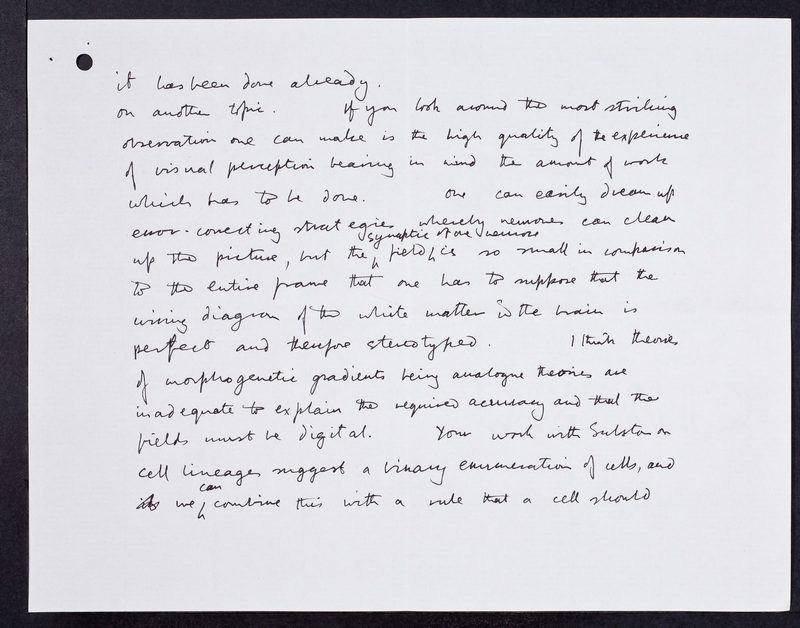 it has been done already.
on another topic. If you look around the most striking
observation one can make is the high quality of the experience
of visual perception bearing in mind the amount of work
which has to be done. One can easily dream up
error-correcting strategies whereby neurones can clean
synaptic of one neurone
up the picture, but the field is so small in comparison
to the entire frame that one has to suppose that the
wiring diagram of the white matter in the brain is
perfect and therefore stereotyped. I think theories
of morphogenetic gradients being analogue theories are
inadequate to explain the required accuracy and that the
fields must be digital. Your work with Sulston on
cell lineages suggest a binary enumeration of cells, and
can
we combine this with a rule that a cell should